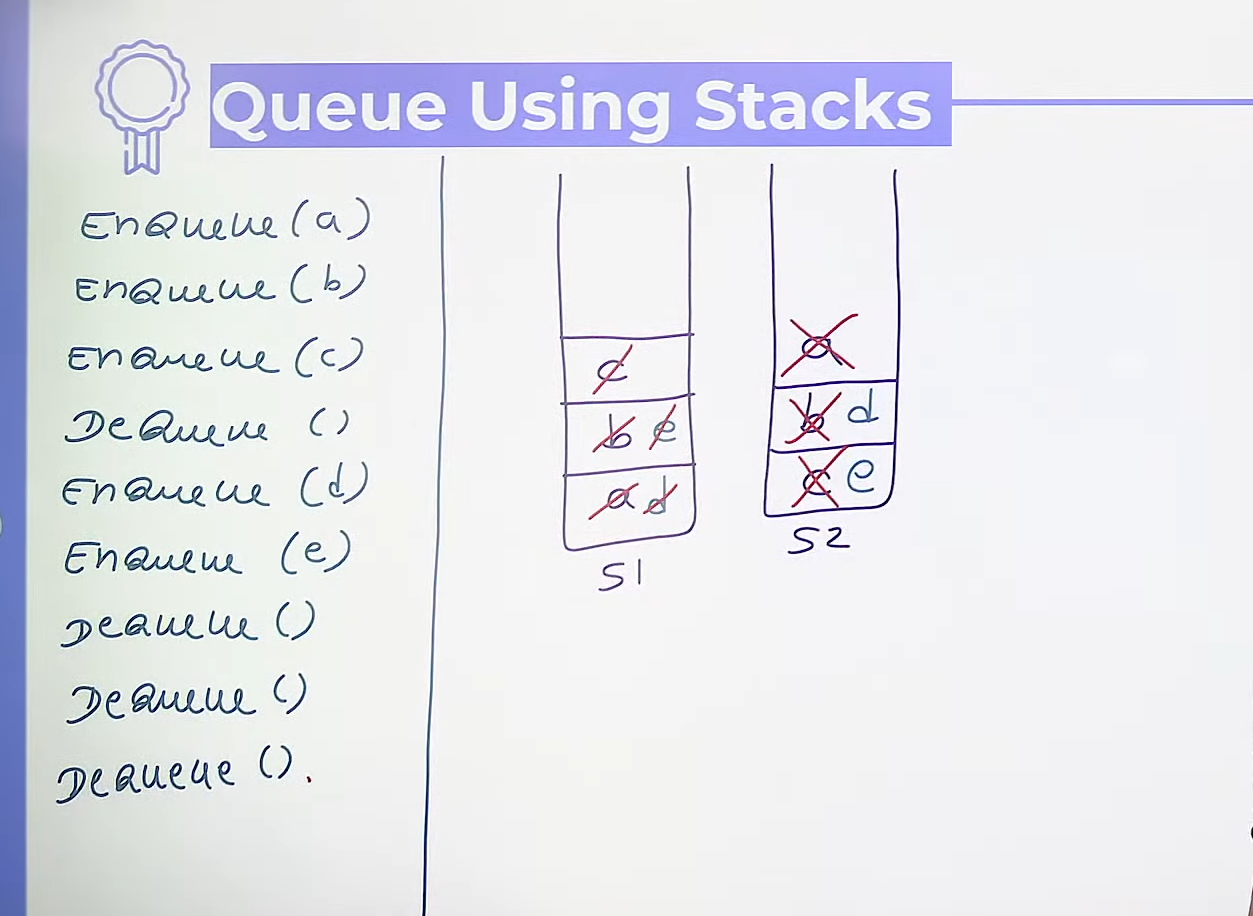 Queue Using Stacks
Enqueue (a)
Enqueue (b)
Enqueue (c)
DeQueue ()
Enqueue (d)
Enqueue (e)
Dequeue ()
DeQueue ()
Dequeue ().
c
b e
a d
S1
a
b d
c e
S2